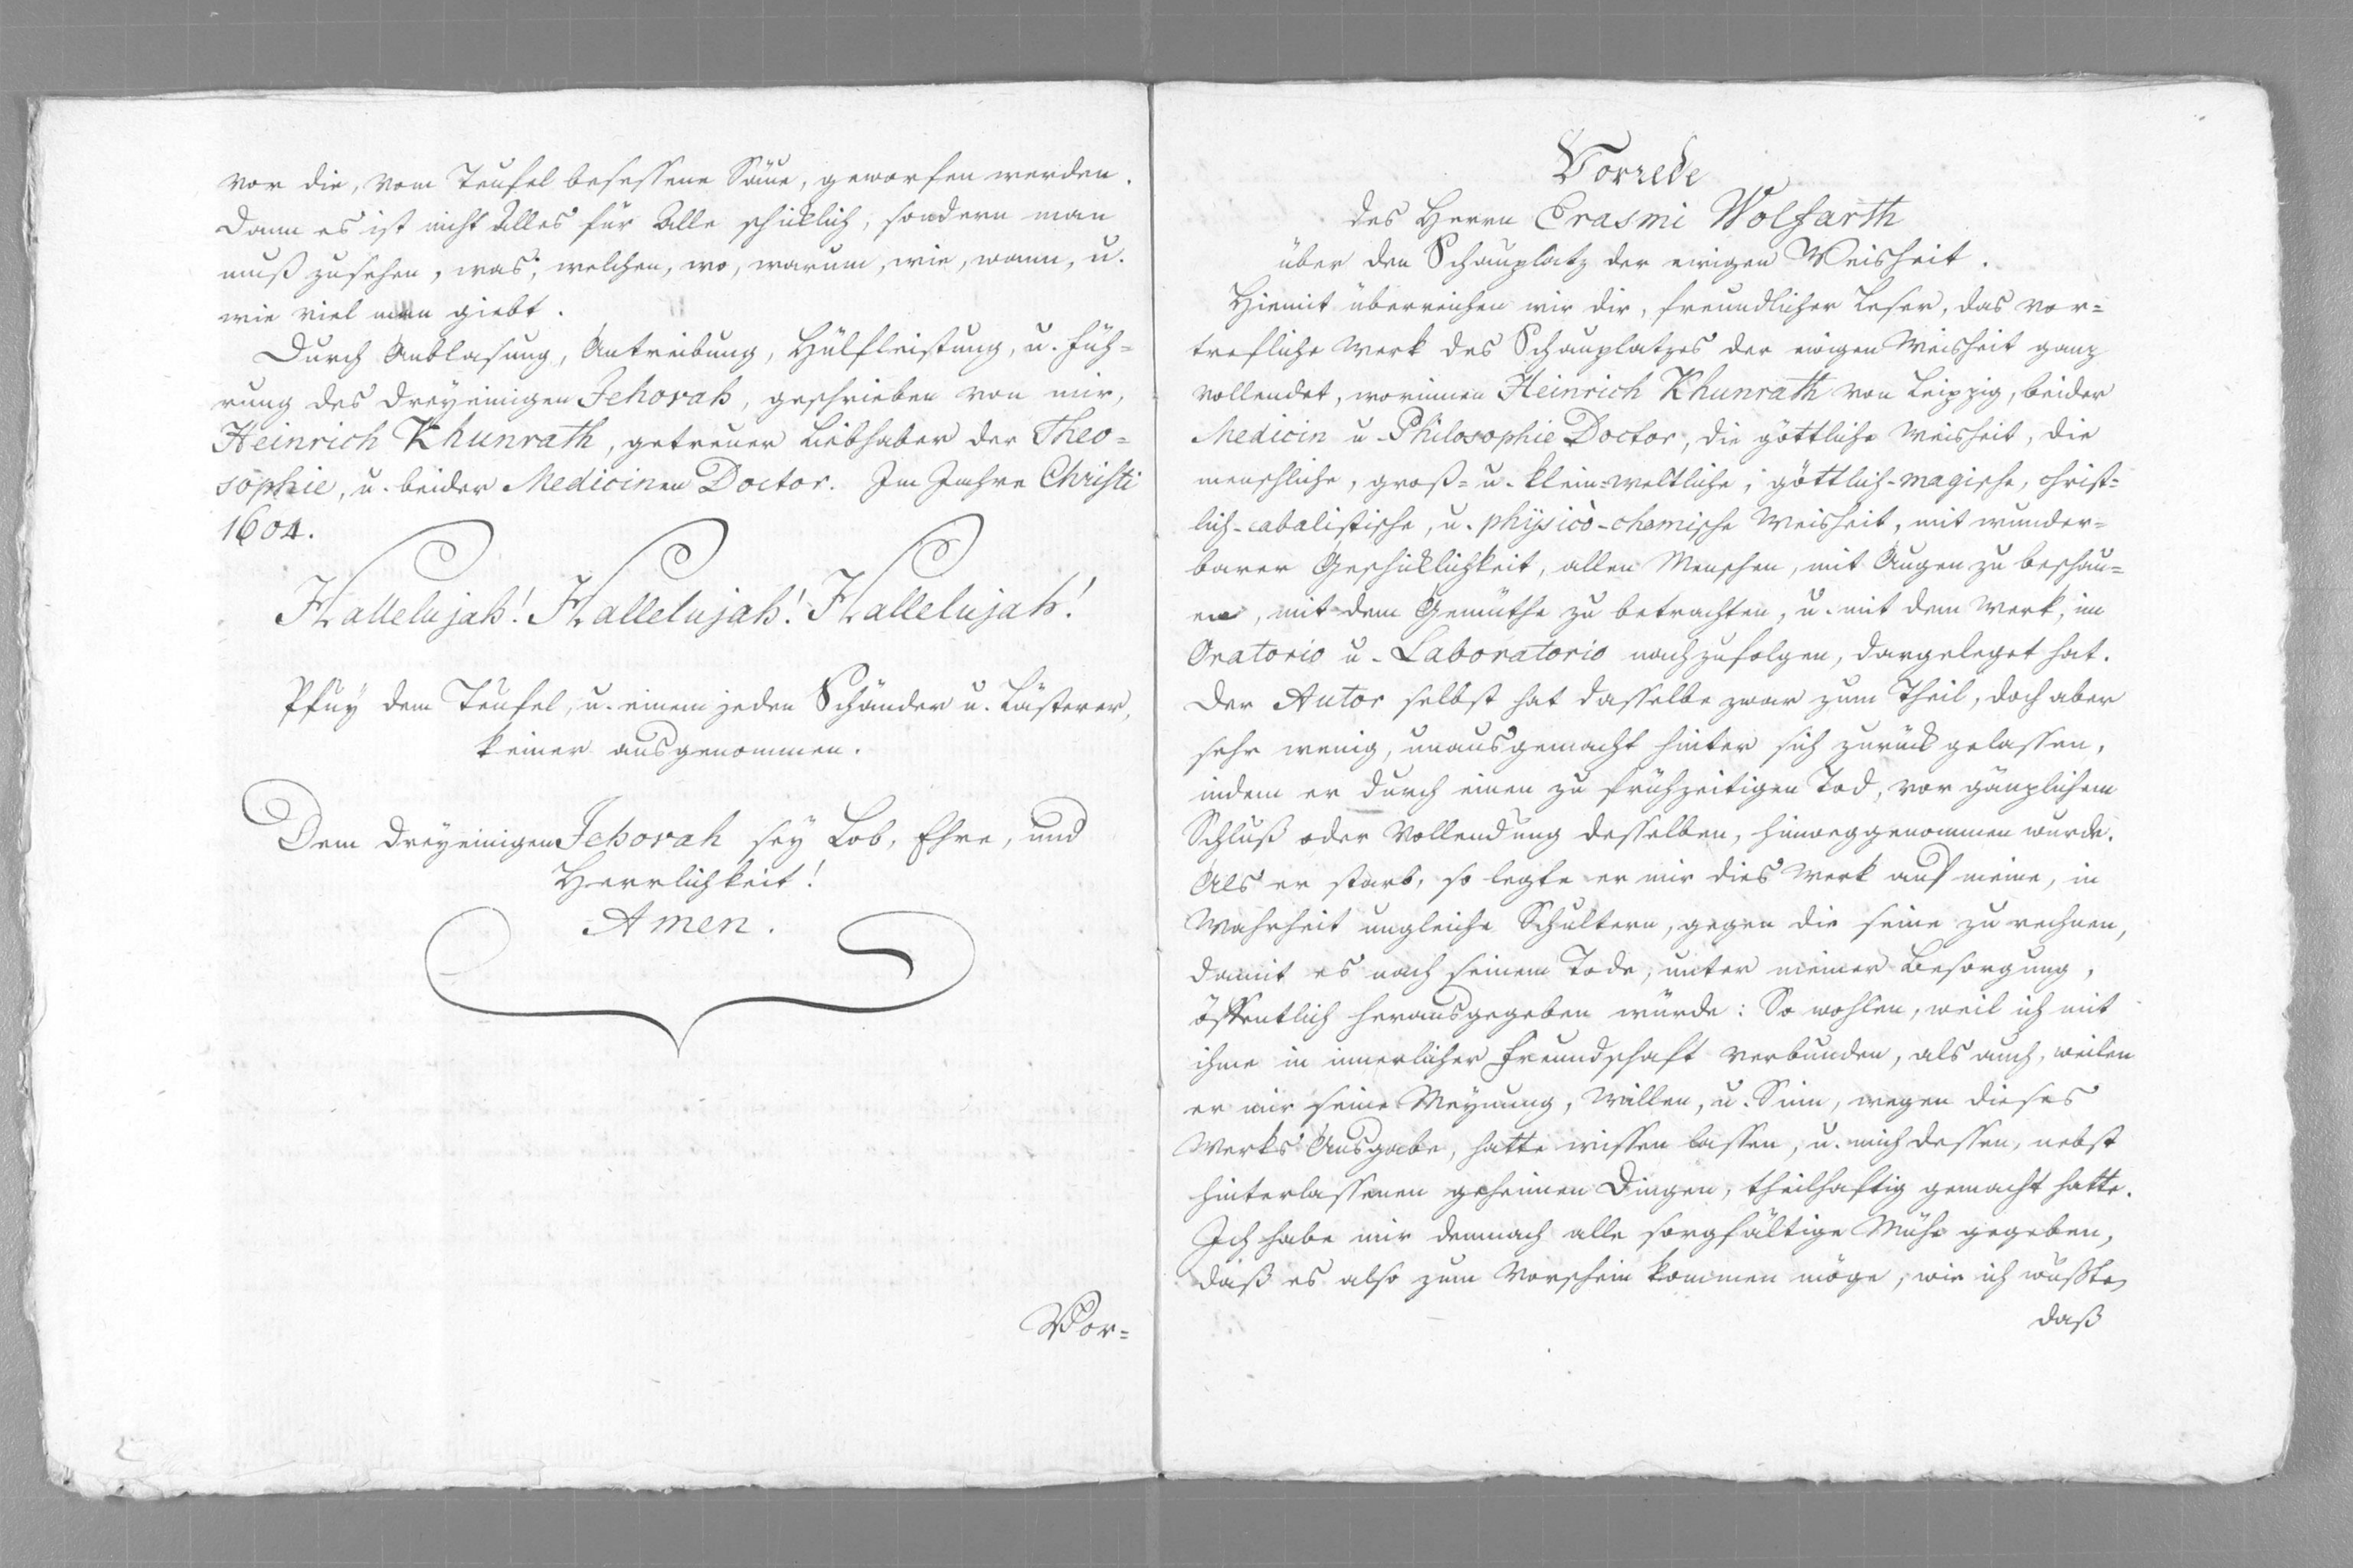 vor die, vom Teufel besessene Säue, geworfen werden.
Dann es ist nicht Alles für Alle schicklich, sondern man
muß zusehen, was, welchen, wo, warum, wie, wann, u.
wie viel man giebt.
Durch Anblasung, Antreibung, Hülfleistung, u. Füh=
rung des dreyeinigen Jehovah, geschrieben von mir,
Heinrich Khunrath, getreuer Liebhaber der Theo=
sophie, u. beider Medicinen Doctor. Im Jahre Christi
1604.
Hallelujah! Hallelujah! Hallelujah!
Pfuy dem Teufel, u. einem jeden Schänder u. Lästerer,
keiner ausgenommen.
Dem dreyeinigen Jehovah sey Lob, Ehre, und
Herrlichkeit!
Amen.
Vor=
Vorrede
des Herrn Erasmi Wolfarth
über den Schauplatz der ewigen Weisheit.
Hiemit überreichen wir dir, freundlicher Leser, das vor=
trefliche Werk des Schauplatzes der ewigen Weisheit ganz
vollendet, worinnen Heinrich Khunrath von Leipzig, beider
Medicin u. Philosophie Doctor, die göttliche Weisheit, die
menschliche, groß= u. klein=weltliche, göttlich-magische, christ=
lich-cabalistische, u. physico-chemische Weisheit, mit wunder=
barer Geschicklichkeit, allen Menschen, mit Augen zu beschau=
en, mit dem Gemüthe zu betrachten, u. mit dem Werk, im
Oratorio u. Laboratorio nachzufolgen, dargeleget hat.
Der Autor selbst hat dasselbe zwar zum Theil, doch aber
sehr wenig, unausgemacht hinter sich zurück gelassen,
indem er durch einen zu frühzeitigen Tod, vor gänzlichem
Schluß oder Vollendung desselben, hinweggenommen wurde.
Als er starb, so legte er mir dies Werk auf meine, in
Wahrheit ungleiche Schultern, gegen die seine zu rechnen,
damit es nach seinem Tode, unter meiner Besorgung,
öffentlich herausgegeben würde: So wohlen, weil ich mit
ihme in innerlicher Freundschaft verbunden, als auch, weilen
er mir seine Meynung, Willen, u. Sinn, wegen dieses
Werks Ausgabe, hatte wissen lassen, u. mich dessen, nebst
hinterlassenen geheimen Dingen, theilhaftig gemacht hatte.
Ich habe mir demnach alle sorgfältige Mühe gegeben,
daß es also zum Vorschein kommen möge, wie ich wußte,
daß